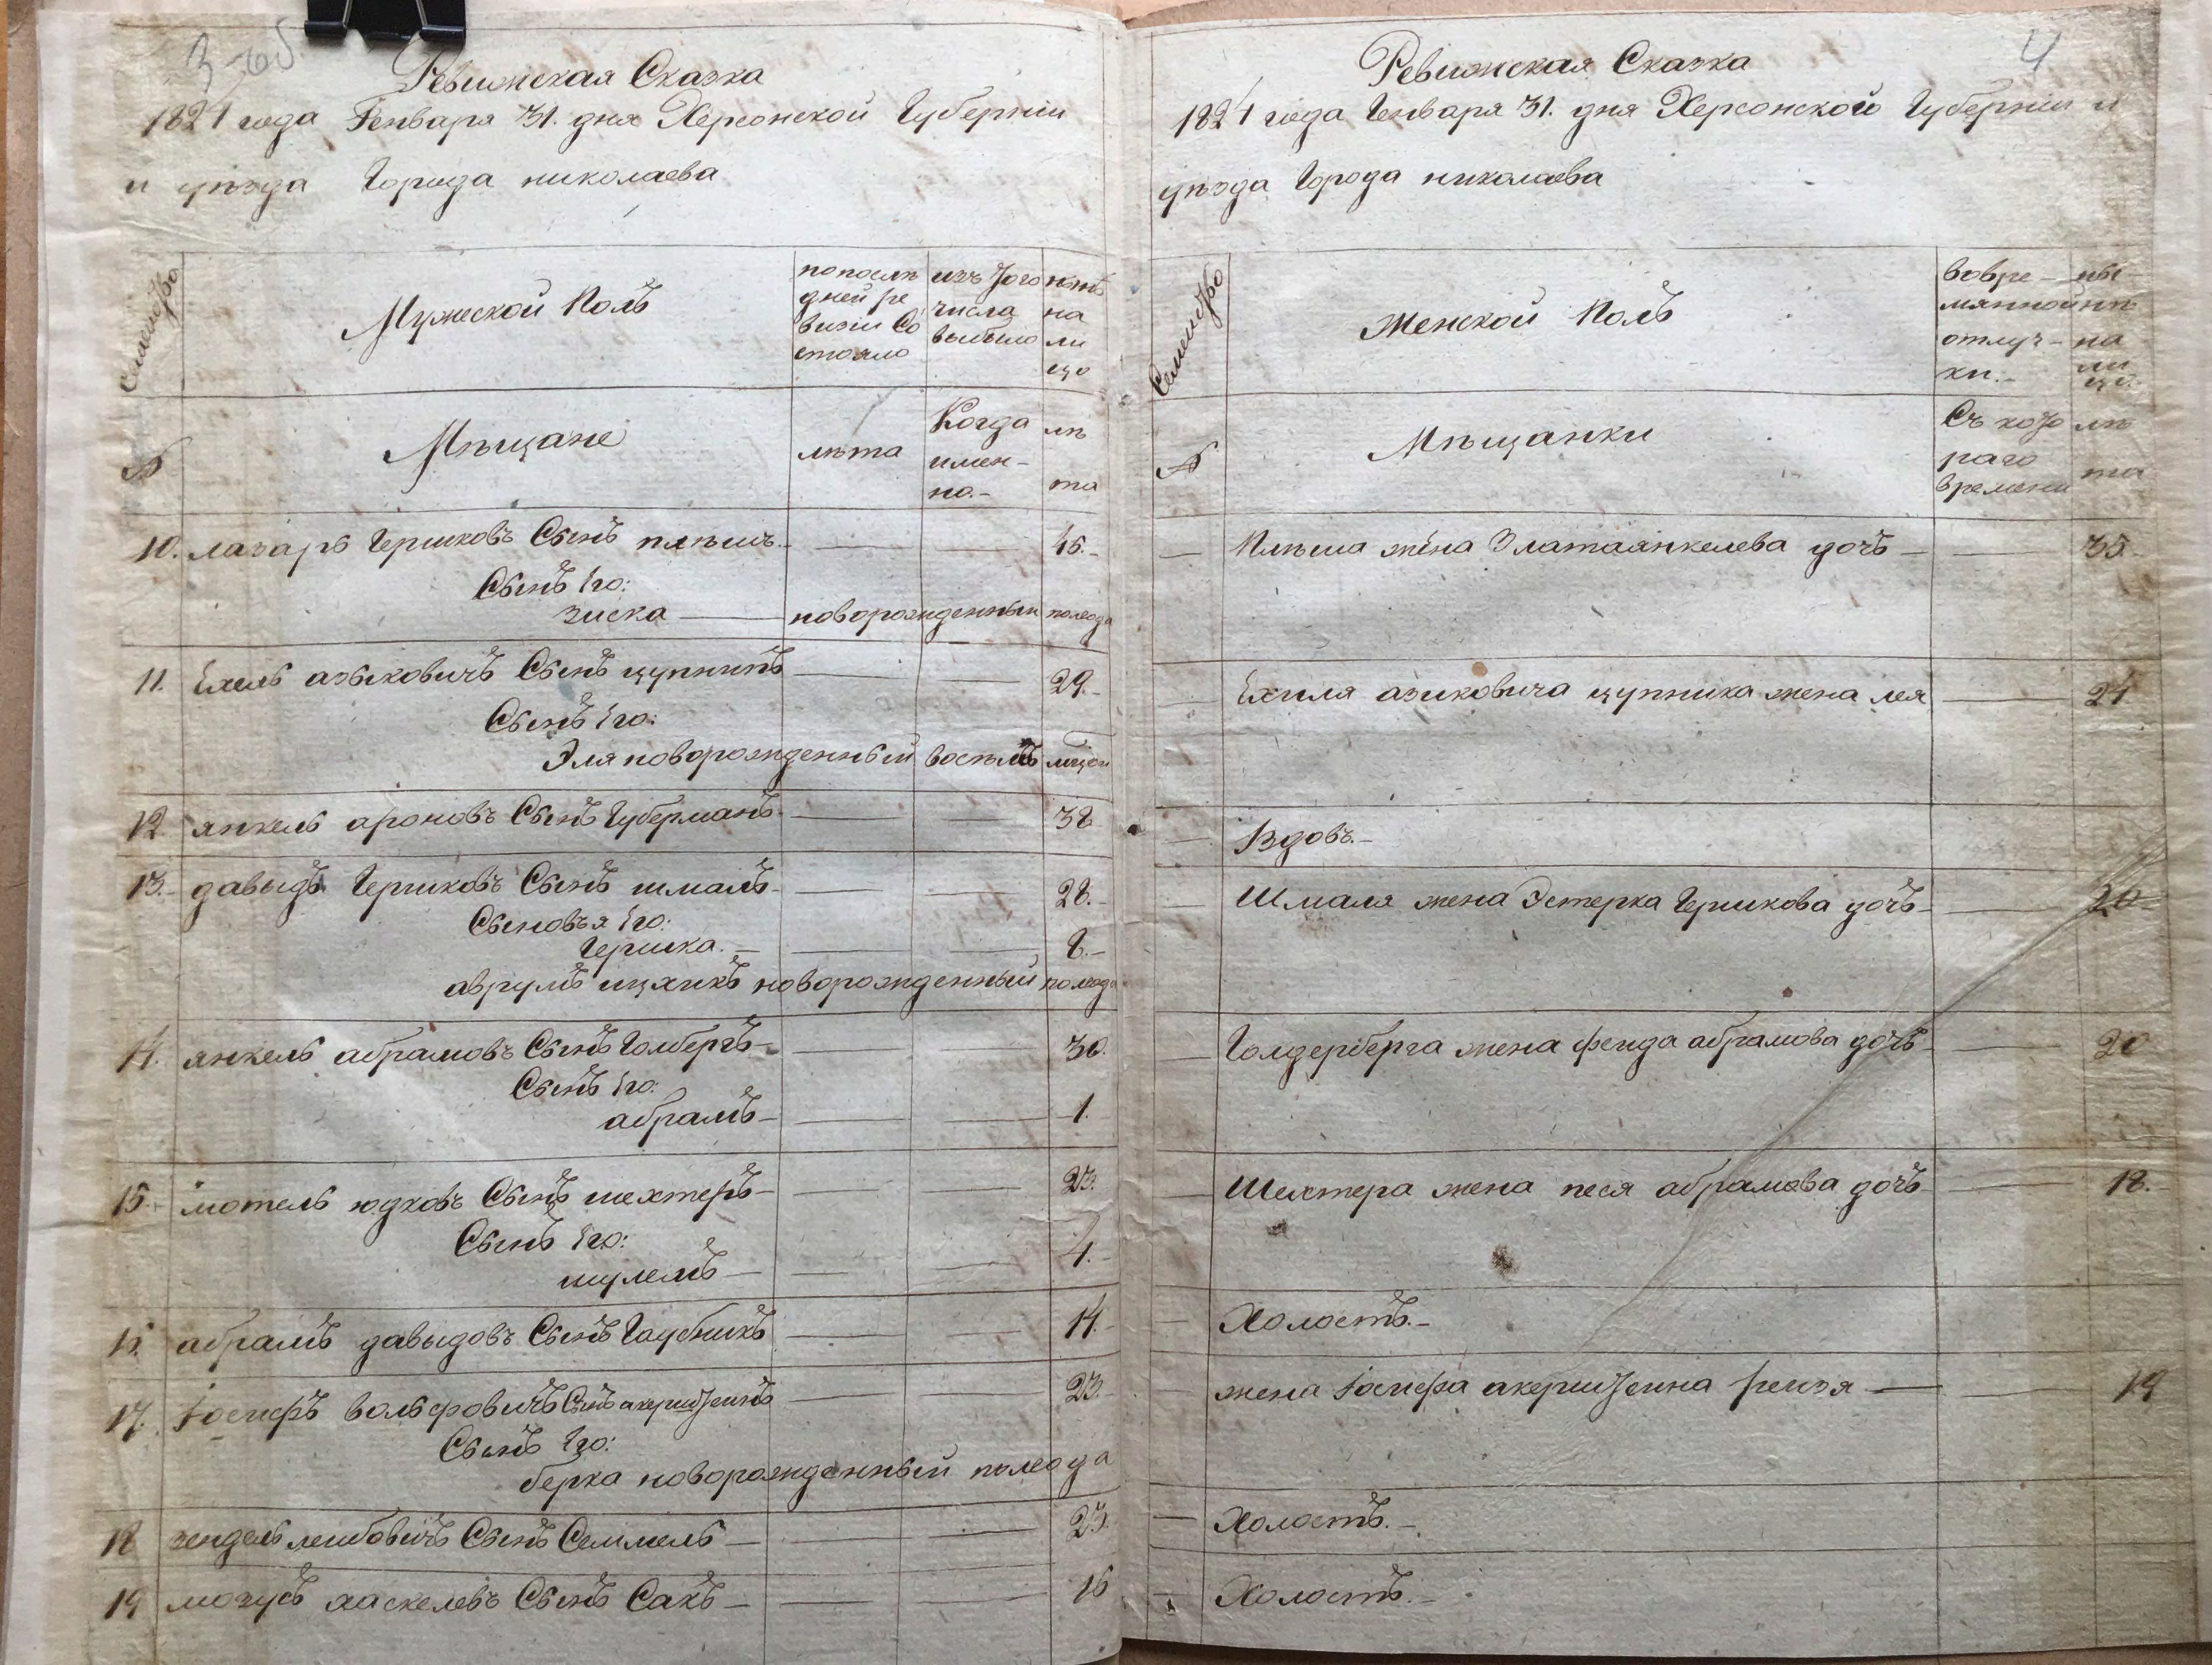 3 об
Ревижская Сказка
1824 года Генваря 31. дня Херсонской Губернии
и уѣзда Города николаева
Семейство
Мужеской Полъ
по послѣ
дней ре
визiи Со
стояло
изъ того
числа
выбыло
нынѣ
на
ли
цо
№
Мѣщане
лѣта
Когда
имен-
но.-
лѣ
та
10. лазарь Гершковъ Сынъ плѣшъ. 45.-
Сынъ Его:
зиска новорожденныи полгода
11. Ехель азыковичъ Сынъ цупникъ 29.-
Сынъ Его:
Эля новорожденный восемъ
12. янкель ароновъ Сынъ Губерманъ 38
13. давыдъ Гершковъ Сынъ шмаль- 28.-
Сыновья Его:
Гершка.- 8.-
аврумъ ицхикъ новорожденный полгода
14. янкель абрамовъ Сынъ Голбергъ- 30.
Сынъ Его:
абрамъ- 1.
15. мотель юдковъ Сынъ шехтеръ- 23.
Сынъ Его:
шулемъ- 4.-
16. абрамъ давыдовъ Сынъ 14.-
17. Іосифъ вольфовичъ Сынъ акерштеинъ 23.-
Сынъ Его:
берка новорожденный полгода
18 зендель лейбовичъ Сынъ Семмель- 23.
19 мозусъ хаскелевъ Сынъ Сакъ- 16
4
Ревижская Сказка
1824 года Генваря 31. дня Херсонской Губернии и
уѣзда Города николаева
Семейство
Женской Полъ
вовре-
мянной
отлуч-
ки.-
ны
нѣ
на
ли
цо.
№
Мѣщанки
Съ кото
раго
времени
лѣ
та
Плѣша жена Злата янкелева дочь 35.-
Ехиля азиковича цупника жена лея 24.
Вдовъ.-
Шмаля жена Эстерка Гершкова дочь- 20.-
Голдерберга жена феида абрамова дочь 20
Шехтера жена песя абрамова дочь 18.
Холостъ.-
жена Іосифа акерштеина реизя 19
Холостъ.-
Холостъ.-